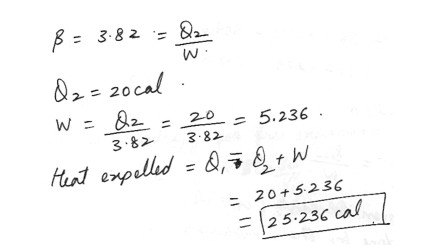 β = 3.82 = Q2/W.
Q2 = 20cal.
W = Q2/3.82 = 20/3.82 = 5.236.
Heat expelled = Q1 = Q2 + W
= 20+5.236
= 25.236 cal.